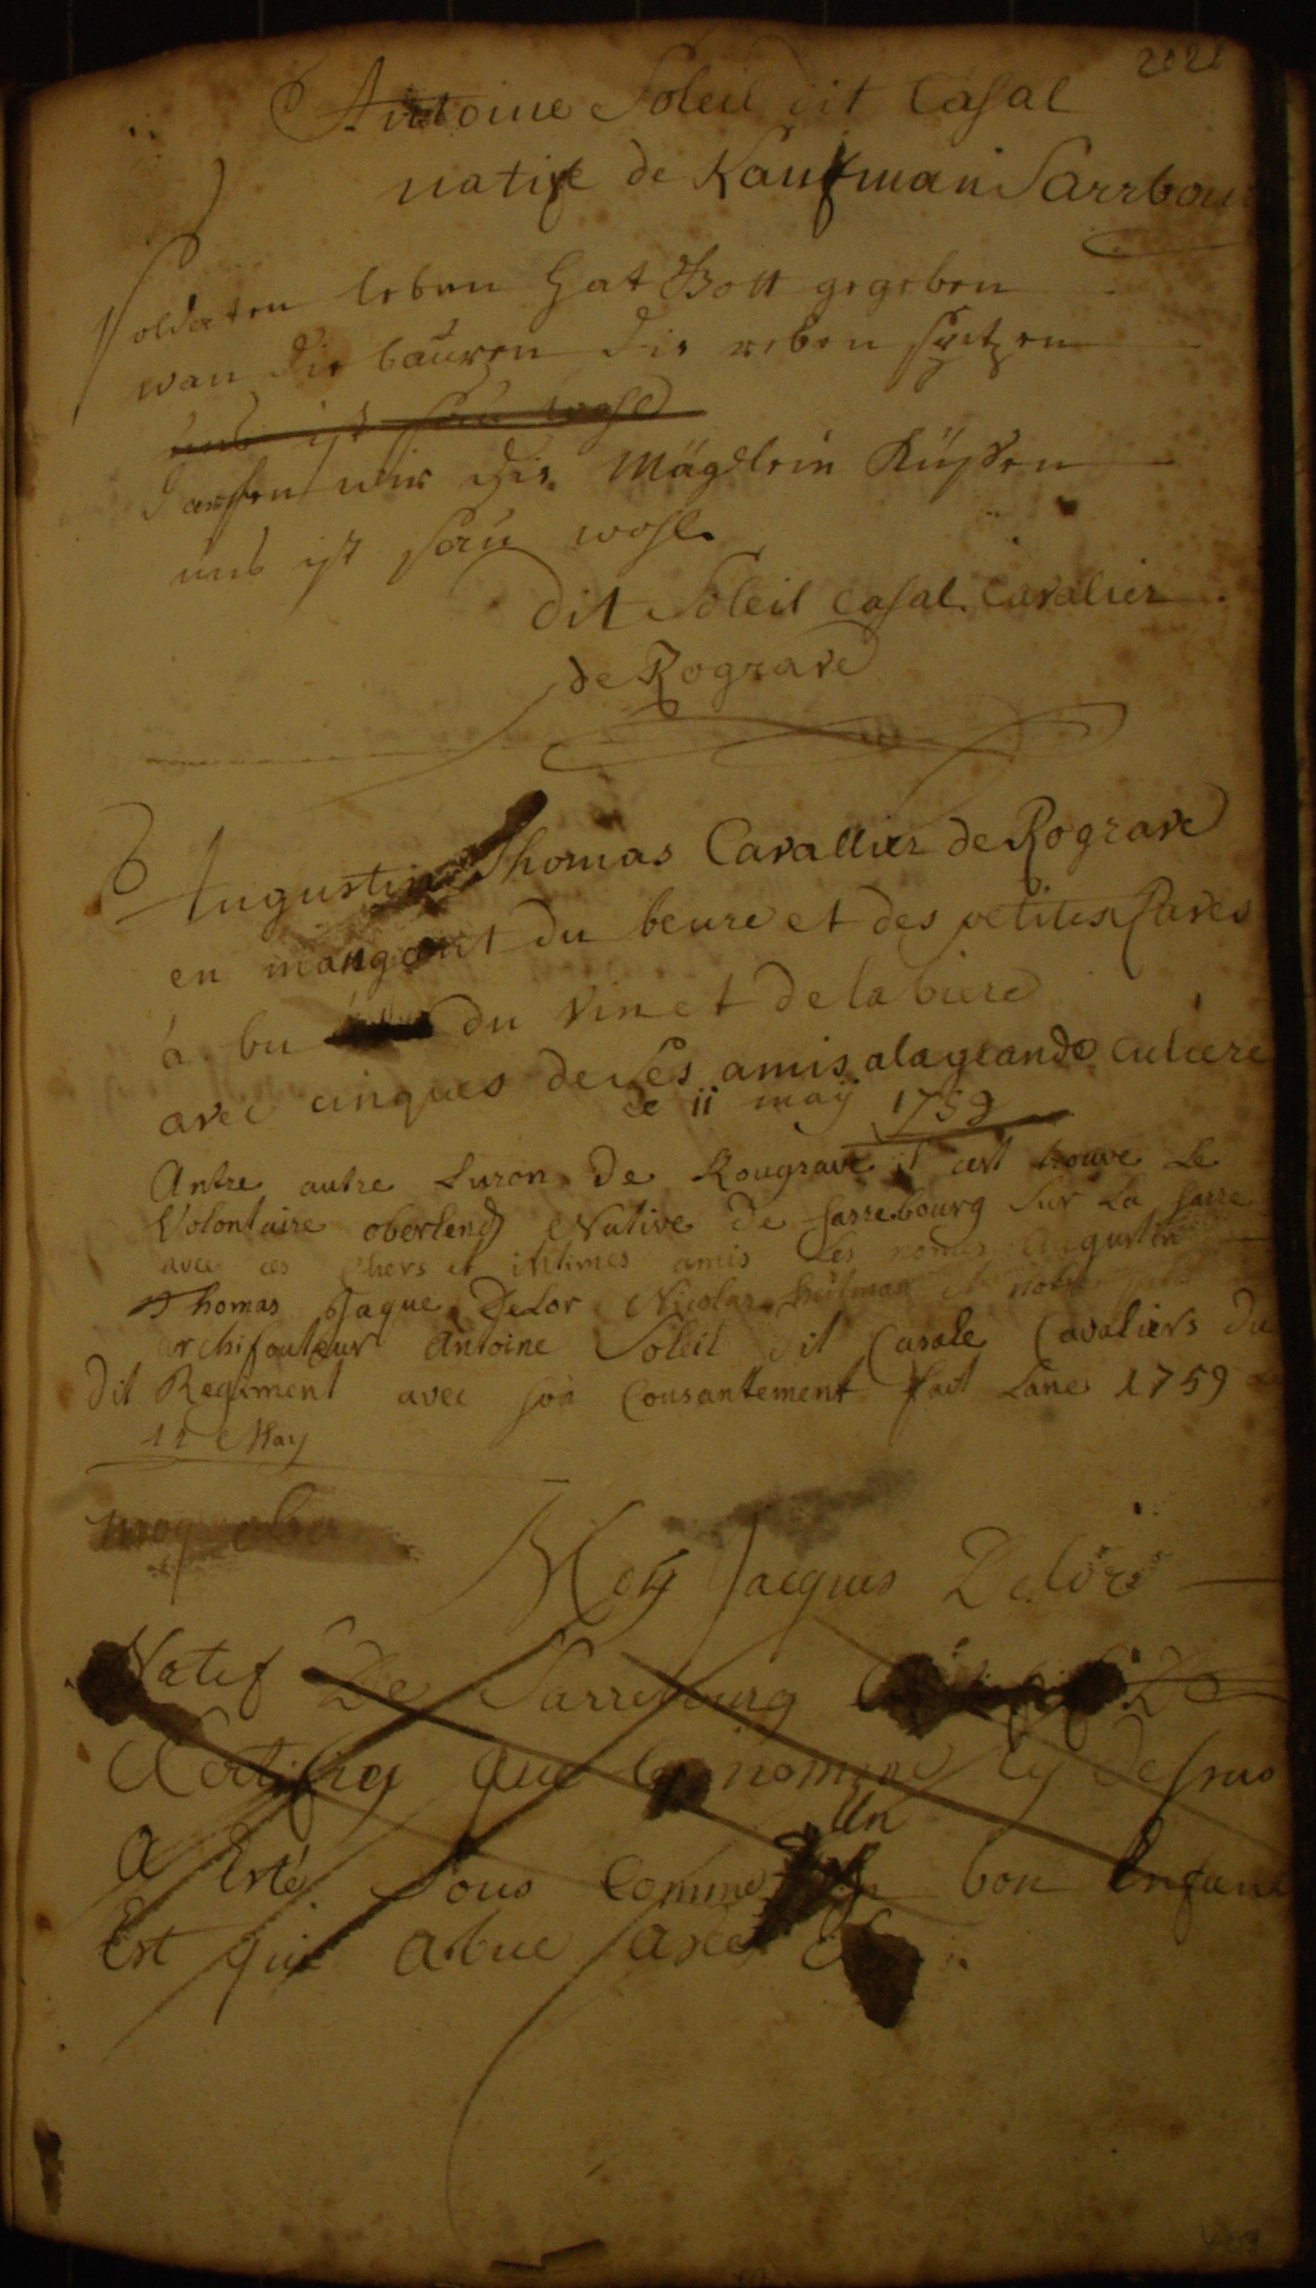 2021
Antoine Soleil dit Casal
natife de Kaufman Sarrbour
Soldaten leben hat Gott gegeben
wan die bauren die reben sputzen
uns ist sau wohl
darffen wir die Mägdlein Küssen
uns ist sau wohl
dit Soleil Casal Cavalier
de Rograve
Augustin Thomas Cavallier de Rograve
en mangant du beure et des petites raves
à bu du vin et de la biere
avec cinques de ses amis a la grande culiere
ce ii may 1759
Antre autre Luron de Rougrave il cest trouve Le
Volontaire oberlend Native de sarrebourg sur La sarre
avec ces chers et intimes amis Les nomes augustin
Thomas Jaque Delor Nicolas hulman et notre
archifouteur Antoine Soleil dit Casale Cavaliers du
dit Regiment avec son Consantement fait Lane 1759
11 May
moy
Moy Jacques Delor
Natif De Sarrebourg De
Certifiey que Le nomme cy desus
a Esté Sous Comme Un bon Enfant
Est qui abue avec